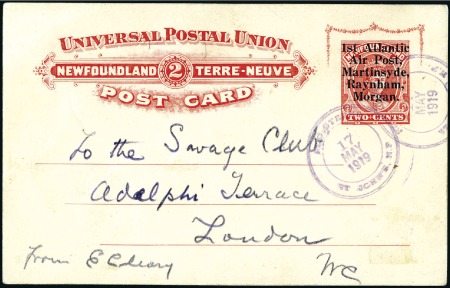 UNIVERSAL POSTAL UNION
NEWFOUNDLAND 2 TERRE-NEUVE
POST CARD
1st Atlantic
Air Post,
Martinsyde,
Raynham,
Morgan.
TWO-CENTS
MAY
1919
17
MAY
1919
ST JOHN'S, N.F.
To the Savage Club
Adelphi Terrace
London
WC
from